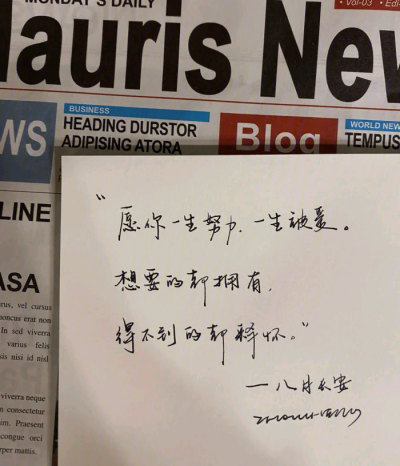 MONDAY'S DAILY
Vol-03
Mauris New
BUSINESS
HEADING DURSTOR
ADIPISING ATORA
Blog
WORLD NEW
TEMPUS
WS
LINE
ASA
rus, vel cursus
rhoncus erat non
In sed viverra
varius felis
sis nisi id nisl
viverra neque
n consectetur
m. Praesent
congue orci
rper mattis.
“愿你一生努力,一生被爱。
想要的都拥有,
得不到的都释怀。”
一八月长安